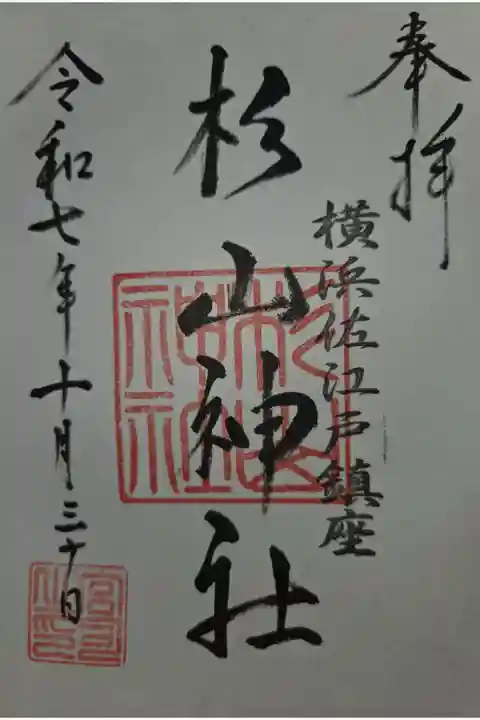 奉拝
横浜佐江戸鎮座
杉山神社
令和七年十月三十日